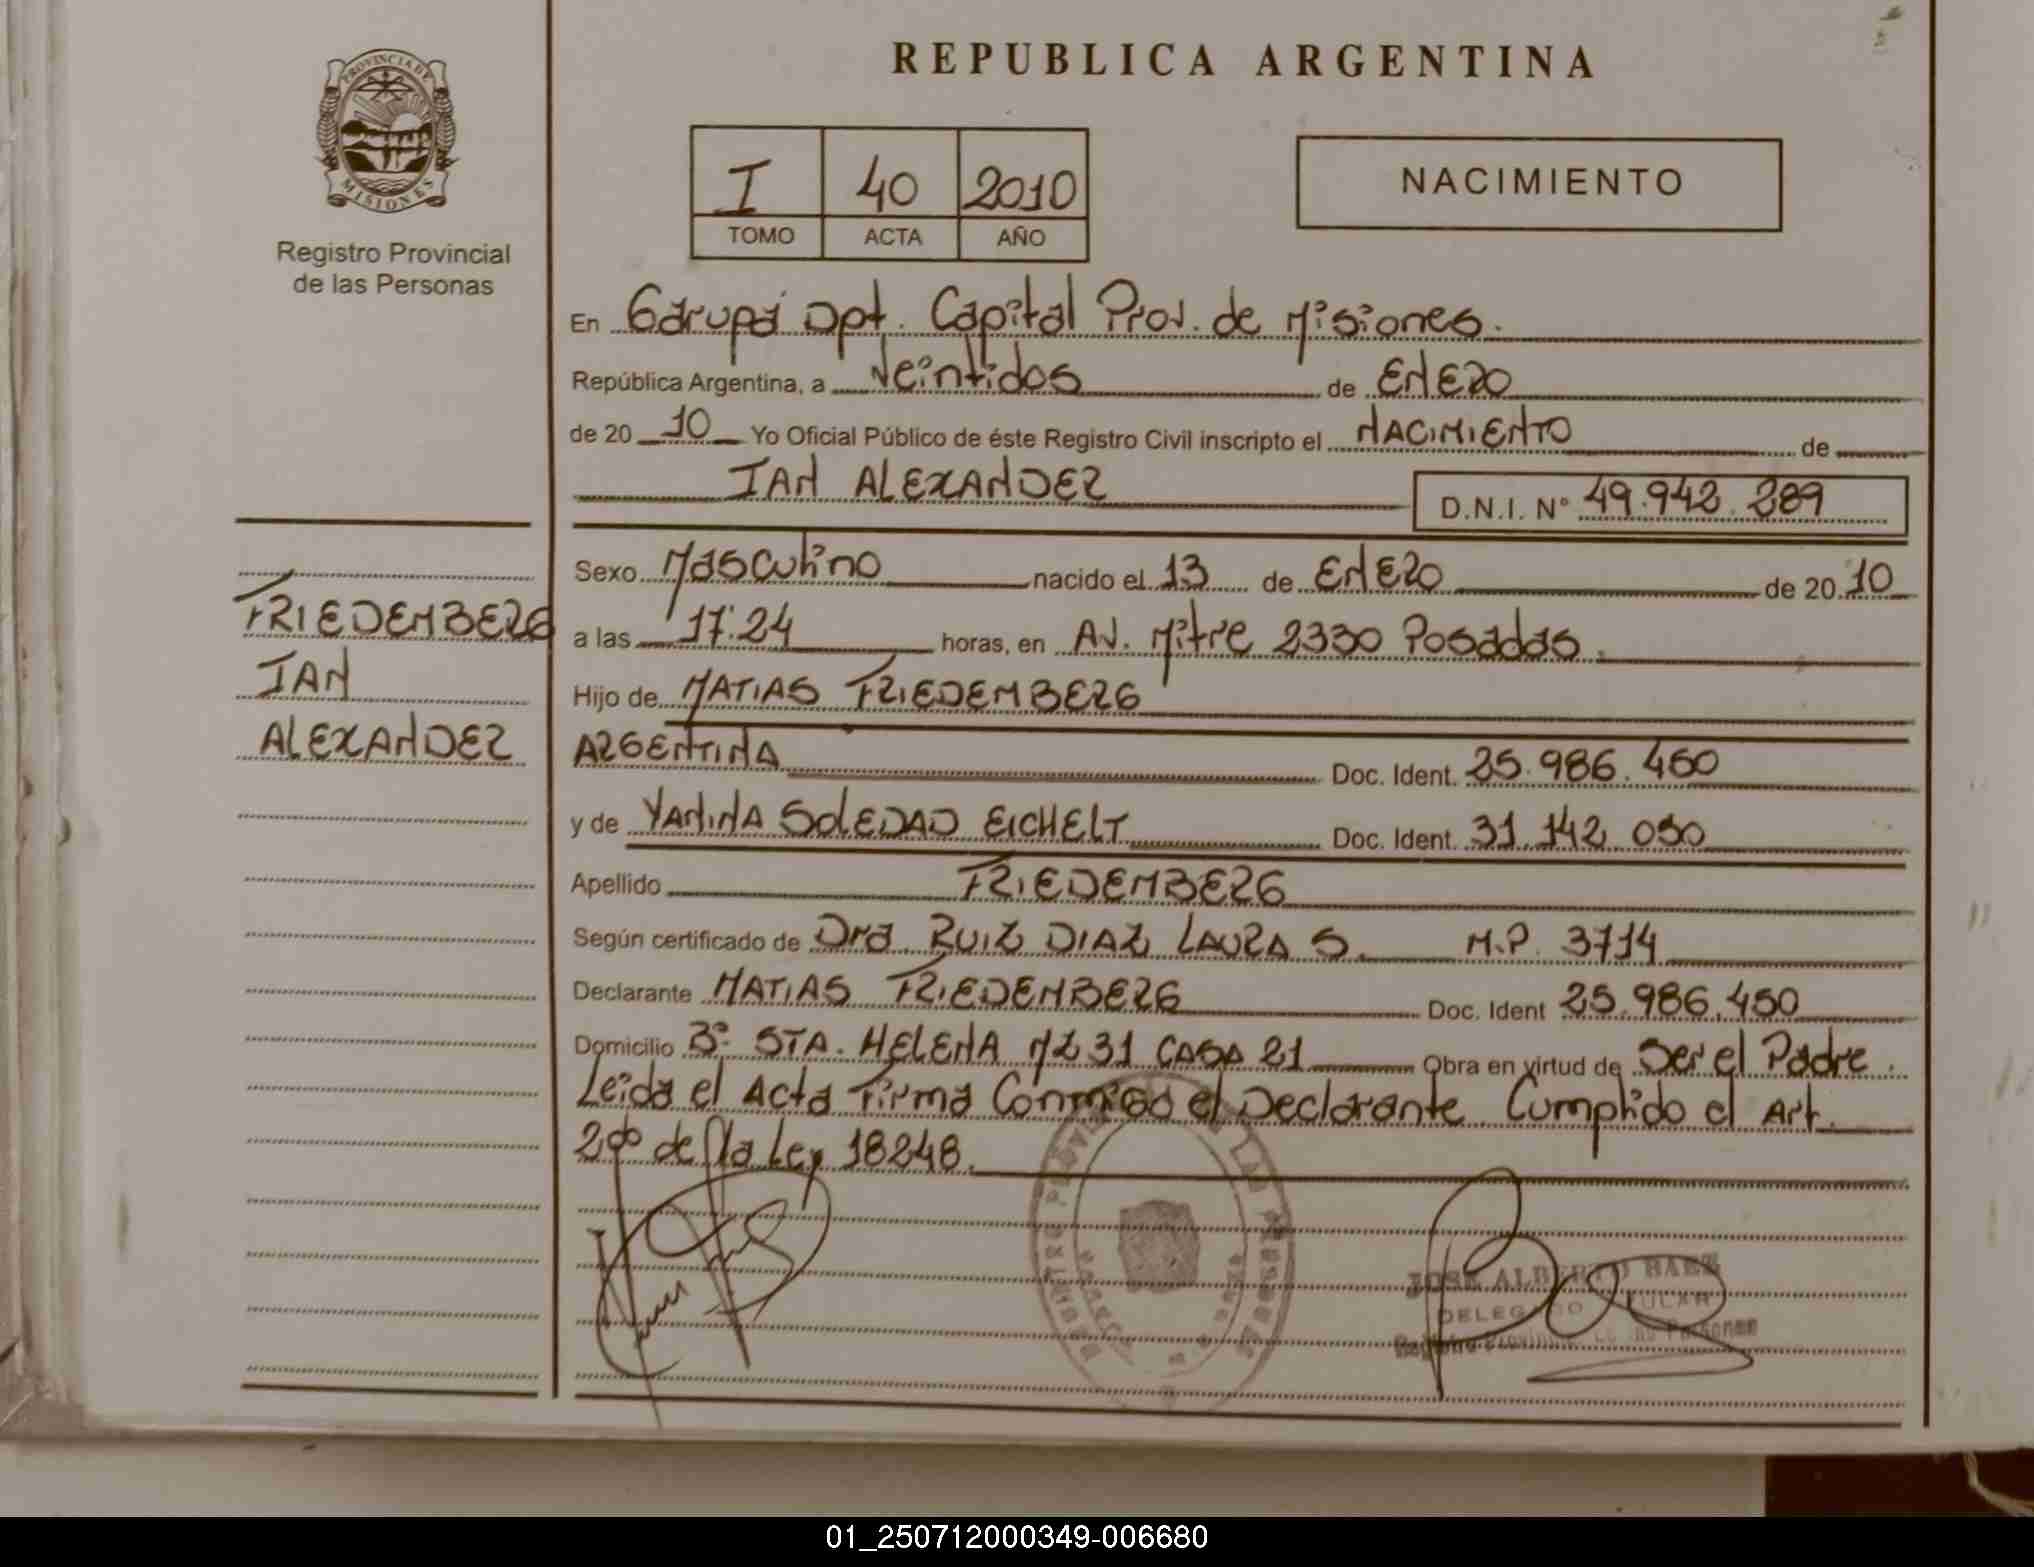 PROVINCIA DE
MISIONES
Registro Provincial
de las Personas
REPUBLICA ARGENTINA
I 40 2010
TOMO ACTA AÑO
NACIMIENTO
En Garupá Dpt. Capital Prov. de Misiones.
República Argentina, a Veintidos de ENERO
de 20 10 Yo Oficial Público de éste Registro Civil inscripto el NACIMIENTO de
IAN ALEXANDER D.N.I. Nº 49.942.289
Sexo Masculino nacido el 13 de ENERO de 20 10
a las 17:24 horas, en Av. Mitre 2330 Posadas.
Hijo de MATIAS FRIEDEMBERG
ARGENTINA Doc. Ident. 25.986.450
y de YANINA SOLEDAD EICHELT Doc. Ident. 31.142.050
Apellido FRIEDEMBERG
Según certificado de Dra. RUIZ DIAZ LAURA S. M.P. 3714
Declarante MATIAS FRIEDEMBERG Doc. Ident 25.986.450
Domicilio Bº STA. HELENA MZ 31 CASA 21 Obra en virtud de Ser el Padre.
Leida el Acta Firma Conmigo el Declarante. Cumplido el Art.
2do de la Ley 18248.
FRIEDEMBERG
IAN
ALEXANDER
JOSE ALBERTO BAEZ
DELEGADO TITULAR
01_250712000349-006680